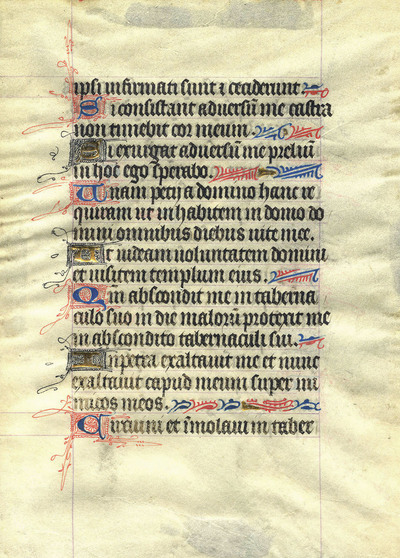 ipsi infirmati sunt et ceciderunt
Si consistant adversū me castra
non timebit cor meum.
Si exurgat adversū me preliū
in hoc ego sperabo.
Unam petij a domino hanc re
quiram ut in habitem in domo do
mini omnibus diebus vite mee.
Ut videam voluntatem domini
et visitem templum eius.
Qm̄ abscondit me in taberna
culo suo in die malorū protexit me
in abscondito tabernaculi sui.
In petra exaltavit me et nunc
exaltavit capud meum super ini
micos meos.
Circuivi et īmolavi in taber